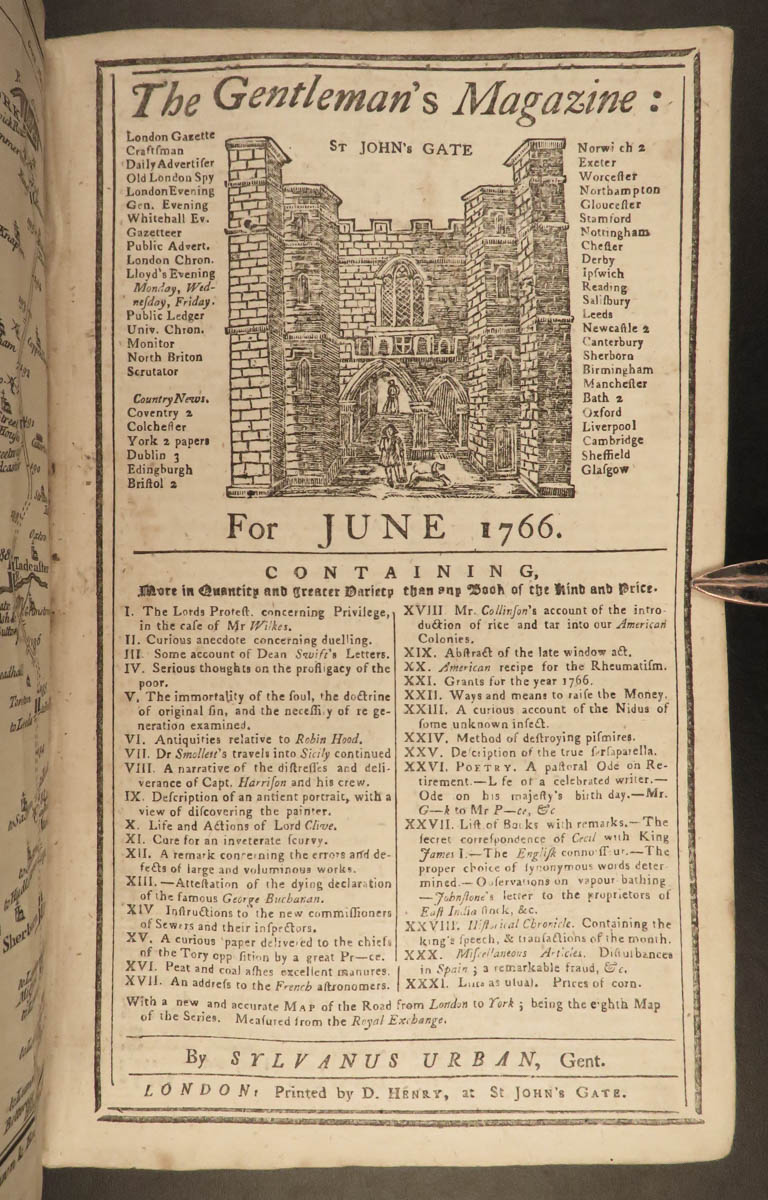 The Gentleman's Magazine:
London Gazette
Craftſman
Daily Advertiſer
Old London Spy
London Evening
Gen. Evening
Whitehall Ev.
Gazetteer
Public Advert.
London Chron.
Lloyd's Evening
Monday, Wed-
neſday, Friday.
Public Ledger
Univ. Chron.
Monitor
North Briton
Scrutator
Country News.
Coventry 2
Colcheſter
York 2 papers
Dublin 3
Edingburgh
Briſtol 2
ST JOHN's GATE
Norwi ch 2
Exeter
Worceſter
Northampton
Glouceſter
Stamford
Nottingham
Cheſter
Derby
Ipſwich
Reading
Saliſbury
Leeds
Newcaſtle 2
Canterbury
Sherborn
Birmingham
Mancheſter
Bath 2
Oxford
Liverpool
Cambridge
Sheffield
Glaſgow
For JUNE 1766.
CONTAINING,
More in Quantity and greater Variety than any Book of the Kind and Price.
I. The Lords Proteſt. concerning Privilege,
in the caſe of Mr Wilkes.
II. Curious anecdote concerning duelling.
III. Some account of Dean Swift's Letters.
IV. Serious thoughts on the profligacy of the
poor.
V. The immortality of the ſoul, the doctrine
of original ſin, and the neceſſity of re ge-
neration examined.
VI. Antiquities relative to Robin Hood.
VII. Dr Smollett's travels into Sicily continued
VIII. A narrative of the diſtreſſes and deli-
verance of Capt. Harriſon and his crew.
IX. Deſcription of an antient portrait, with a
view of diſcovering the painter.
X. Life and Actions of Lord Clive.
XI. Cure for an inveterate ſcurvy.
XII. A remark concerning the errors and de-
fects of large and voluminous works.
XIII.—Atteſtation of the dying declaration
of the famous George Buchanan.
XIV. Inſtructions to the new commiſſioners
of Sewers and their inſpectors.
XV. A curious paper delivered to the chiefs
of the Tory oppoſition by a great Pr—ce.
XVI. Peat and coal aſhes excellent manures.
XVII. An addreſs to the French aſtronomers.
XVIII Mr. Collinſon's account of the intro-
duction of rice and tar into our American
Colonies.
XIX. Abſtract of the late window act.
XX. American recipe for the Rheumatiſm.
XXI. Grants for the year 1766.
XXII. Ways and means to raiſe the Money.
XXIII. A curious account of the Nidus of
ſome unknown inſect.
XXIV. Method of deſtroying piſmires.
XXV. Deſcription of the true ſarſaparella.
XXVI. POETRY. A paſtoral Ode on Re-
tirement.—L fe of a celebrated writer.—
Ode on his majeſty's birth day.—Mr.
G—k to Mr P—ce, &c
XXVII. Liſt of Books with remarks.—The
ſecret correſpondence of Cecil with King
James I.—The Engliſh connoiſſeur.—The
proper choice of ſynonymous words deter
mined.—Obſervations on vapour bathing
—Johnſtone's letter to the proprietors of
Eaſt India ſtock, &c.
XXVIII. Hiſtorical Chronicle. Containing the
king's ſpeech, & tranſactions of the month.
XXX. Miſcellaneous Articles. Diſturbances
in Spain; a remarkable fraud, &c.
XXXI. Liſts as uſual. Prices of corn.
With a new and accurate MAP of the Road from London to York; being the eighth Map
of the Series. Meaſured from the Royal Exchange.
By SYLVANUS URBAN, Gent.
LONDON: Printed by D. HENRY, at St JOHN's GATE.